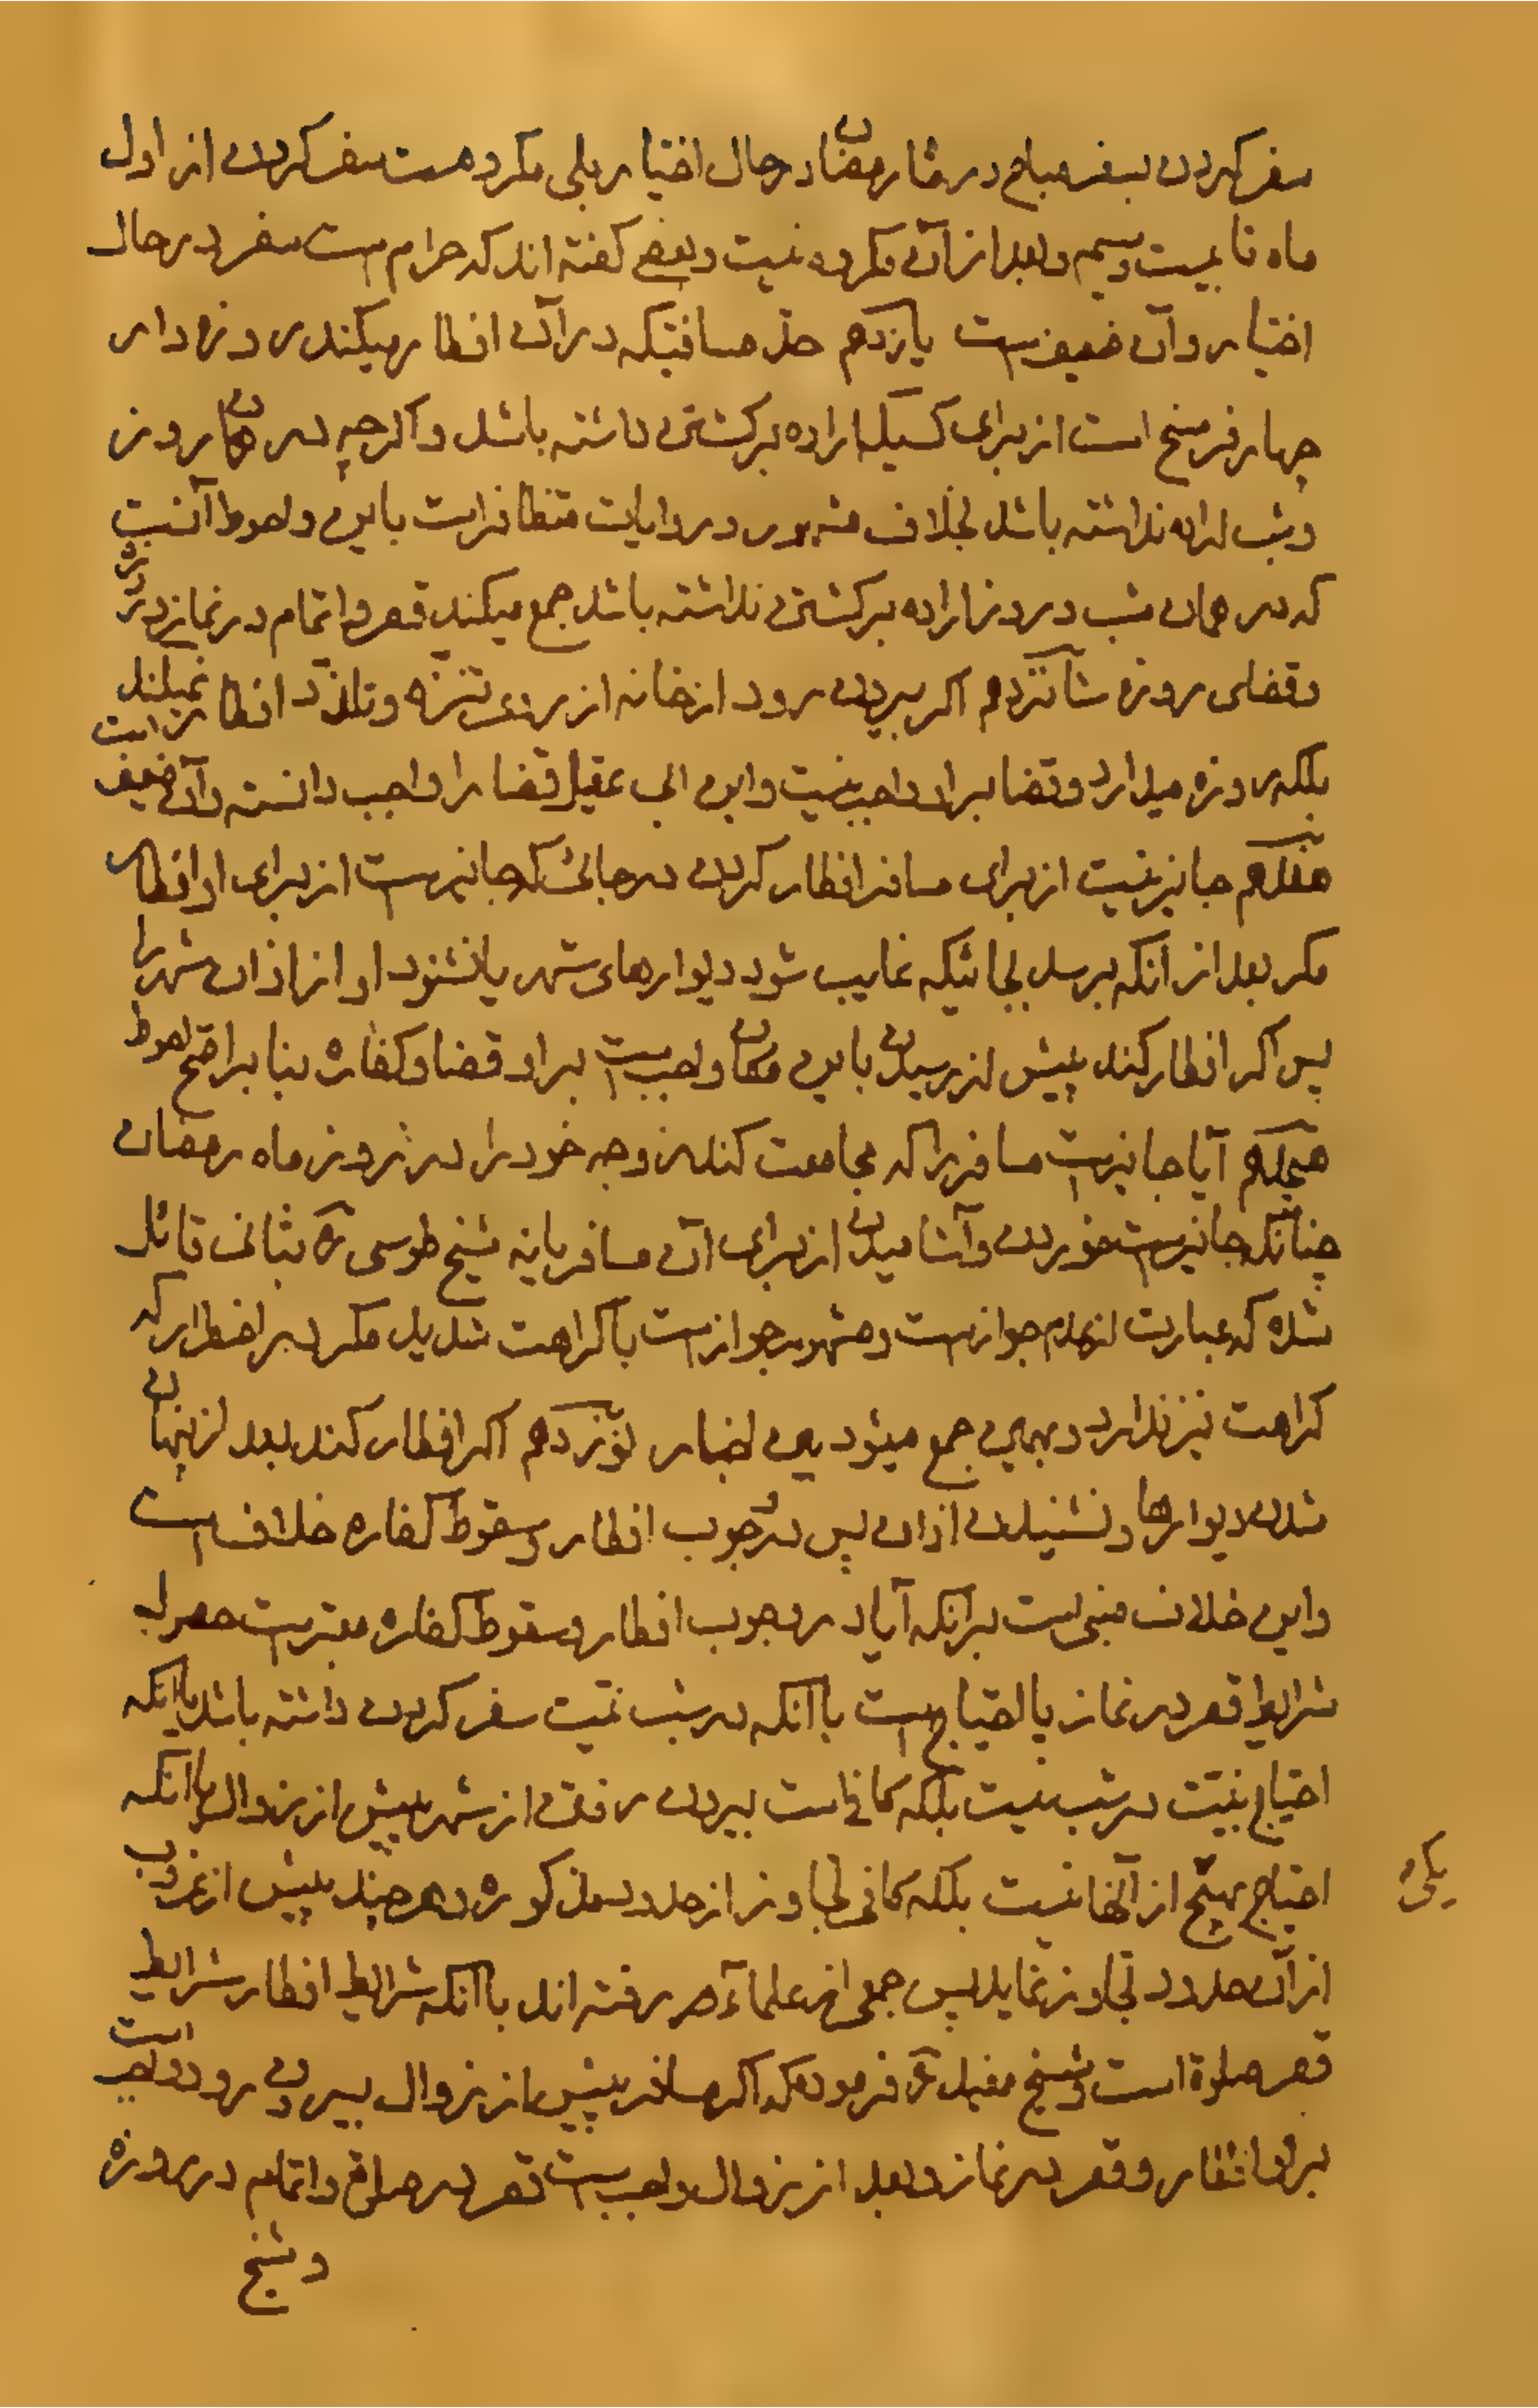 سفر کردن بسفر مباح در ماه رمضان در حال اختیار بلی مکروهست سفر کردن از اول
ماه تا بیست و سیم و بعد از آن مکروه نیست و بعضی کفته اند که حرام است سفر در حال
اختیار و آن ضعیف است یازدهم حد مسافتیکه در آن افطار میکند روزه دار
چهار فرسخ است از برای کسیکه اراده برکشتن داشته باشد و اکرچه در همان روز
و شب اراده نداشته باشد بخلاف مشهور و روایات متظافر است باین و احوط آنست
که در همان شب و روز اراده برکشتن نداشته باشد جمع میکند قصر و اتمام در نماز و روزه
و قضای روزه شانزدهم اکر بیرون رود از خانه از برای تنزّه و تلذّذ افطار نمیکند
بلکه روزه میدارد و قضا بر او واجب نیست و ابن ابی عقیل قضا را واجب دانسته و آن ضعیف است
هفدهم جایز نیست از برای مسافر افطار کردن در جائیکه جایز است از برای او افطار
مکر بعد از آنکه برسد بجائیکه غایب شود دیوارهای شهر یا نشنود اواز اذان شهر را
پس اکر افطار کند پیش از رسیدن باین مکان واجبست بر او قضا و کفاره بنا بر اصح احوط
هیجدهم آیا جایز است مسافر را که مجامعت کند زوجه خود را در روز ماه رمضان
چنانکه جایز است خوردن و آشامیدن از برای آن مسافر یا نه شیخ طوسی ره بثانی قائل
شده که عبارت از عدم جواز است و مشهور جواز است با کراهت شدید مکر در اضطرار که
کراهت نیز ندارد و بهمین جمع میشود بین اخبار نوزدهم اکر افطار کند بعد از پنهان
شدن دیوارها و نشنیدن اذان پس در وجوب افطار و سقوط کفاره خلاف است
و این خلاف مبنی است بر آنکه آیا در وجوب افطار و سقوط کفاره معتبر است حصول
شرایط قصر در نماز یا احتیاج است با آنکه در شب نیّت سفر کردن داشته باشد یا آنکه
احتیاج بنیّت در شب نیست بلکه کافی است بیرون رفتن از شهر پیش از زوال یا آنکه
احتیاج بهیچ یکی از آنها نیست بلکه کافی تجاوز از حدود مذکوره هر چند پیش از غروب
از آن حدود تجاوز نماید پس جمعی از علماء رفته اند با آنکه شرایط افطار شرایط
قصر صلوة است و شیخ مفید ره فرموده که اکر مسافر پیش از زوال بیرون رود واجب است
بر او افطار و قصر در نماز و بعد از زوال واجبست قصر در صلوة و اتمام در روزه
و شیخ